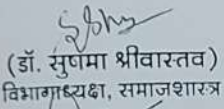 (डॉ. सुषमा श्रीवास्तव)
विभागाध्यक्ष, समाजशास्त्र